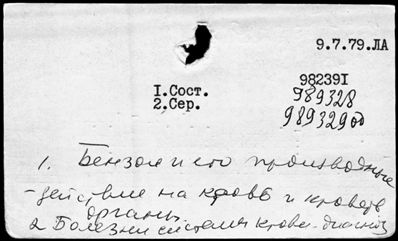 9.7.79.ЛА
I.Сост.
2.Сер.
98239I
989328
98932900
1. Бензол и его производные
- действие на кровь и кровет.
органы
2 Болезни системы крови - диагноз